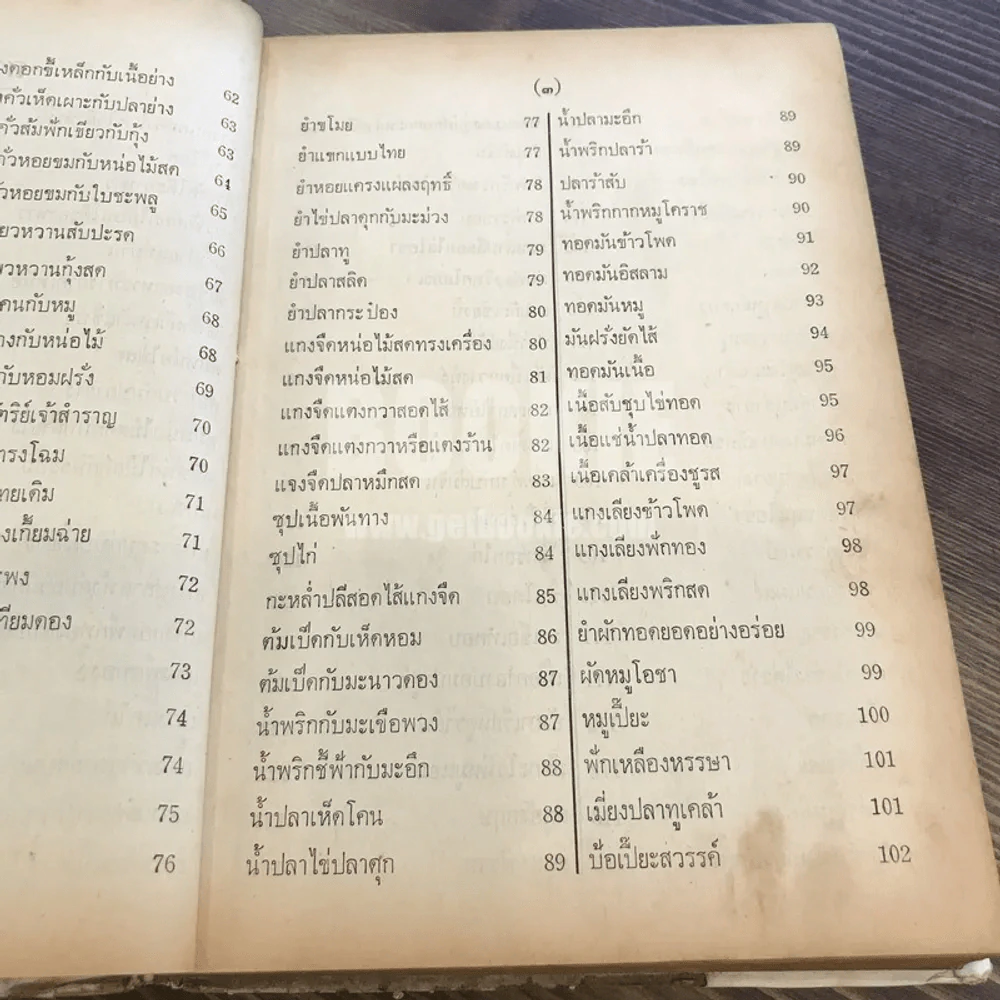 งดอกขี้เหล็กกับเนื้อย่าง 62
คั่วเห็ดเผาะกับปลาย่าง 63
คั่วส้มฟักเขียวกับกุ้ง 63
คั่วหอยขมกับหน่อไม้สด 64
ัวหอยขมกับใบชะพลู 65
ยวหวานสับปะรด 66
ยวหวานกุ้งสด 67
คนกับหมู 68
างกับหน่อไม้ 68
กับหอมฝรั่ง 69
ัตริย์เจ้าสำราญ 70
ทรงโฉม 70
ทยเดิม 71
งเกี้ยมฉ่าย 71
ะพง 72
ทียมดอง 72
73
74
74
75
76
(๓)
ยำขโมย 77
ยำแขกแบบไทย 77
ยำหอยแครงแผลงฤทธิ์ 78
ยำไข่ปลาดุกกับมะม่วง 78
ยำปลาทู 79
ยำปลาสลิด 79
ยำปลากระป๋อง 80
แกงจืดหน่อไม้สดทรงเครื่อง 80
แกงจืดหน่อไม้สด 81
แกงจืดแตงกวาสอดไส้ 82
แกงจืดแตงกวาหรือแตงร้าน 82
แจงจืดปลาหมึกสด 83
ซุปเนื้อพันทาง 84
ซุปไก่ 84
กะหล่ำปลีสอดไส้แกงจืด 85
ต้มเป็ดกับเห็ดหอม 86
ต้มเป็ดกับมะนาวดอง 87
น้ำพริกกับมะเขือพวง 87
น้ำพริกชี้ฟ้ากับมะอึก 88
น้ำปลาเห็ดโคน 88
น้ำปลาไข่ปลาดุก 89
น้ำปลามะอึก 89
น้ำพริกปลาร้า 89
ปลาร้าสับ 90
น้ำพริกกากหมูโคราช 90
ทอดมันข้าวโพด 91
ทอดมันอิสลาม 92
ทอดมันหมู 93
มันฝรั่งยัดไส้ 94
ทอดมันเนื้อ 95
เนื้อสับชุบไข่ทอด 95
เนื้อแช่น้ำปลาทอด 96
เนื้อเคล้าเครื่องชูรส 97
แกงเลียงข้าวโพด 97
แกงเลียงฟักทอง 98
แกงเลียงพริกสด 98
ยำผักทอดยอดอย่างอร่อย 99
ผัดหมูโอชา 99
หมูเปี๊ยะ 100
ฟักเหลืองหรรษา 101
เมี่ยงปลาทูเคล้า 101
ป้อเปี๊ยะสวรรค์ 102